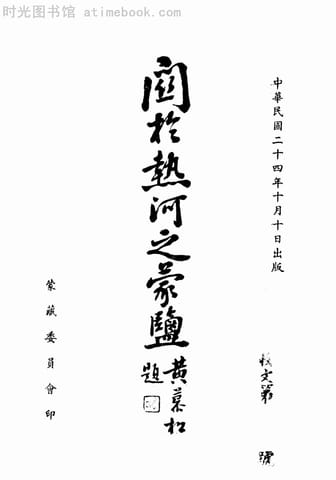 时光图书馆 atimebook.com
中華民國二十四年十月十日出版
第 號
關於熱河之蒙鹽
黃慕松
題
蒙藏委員會印